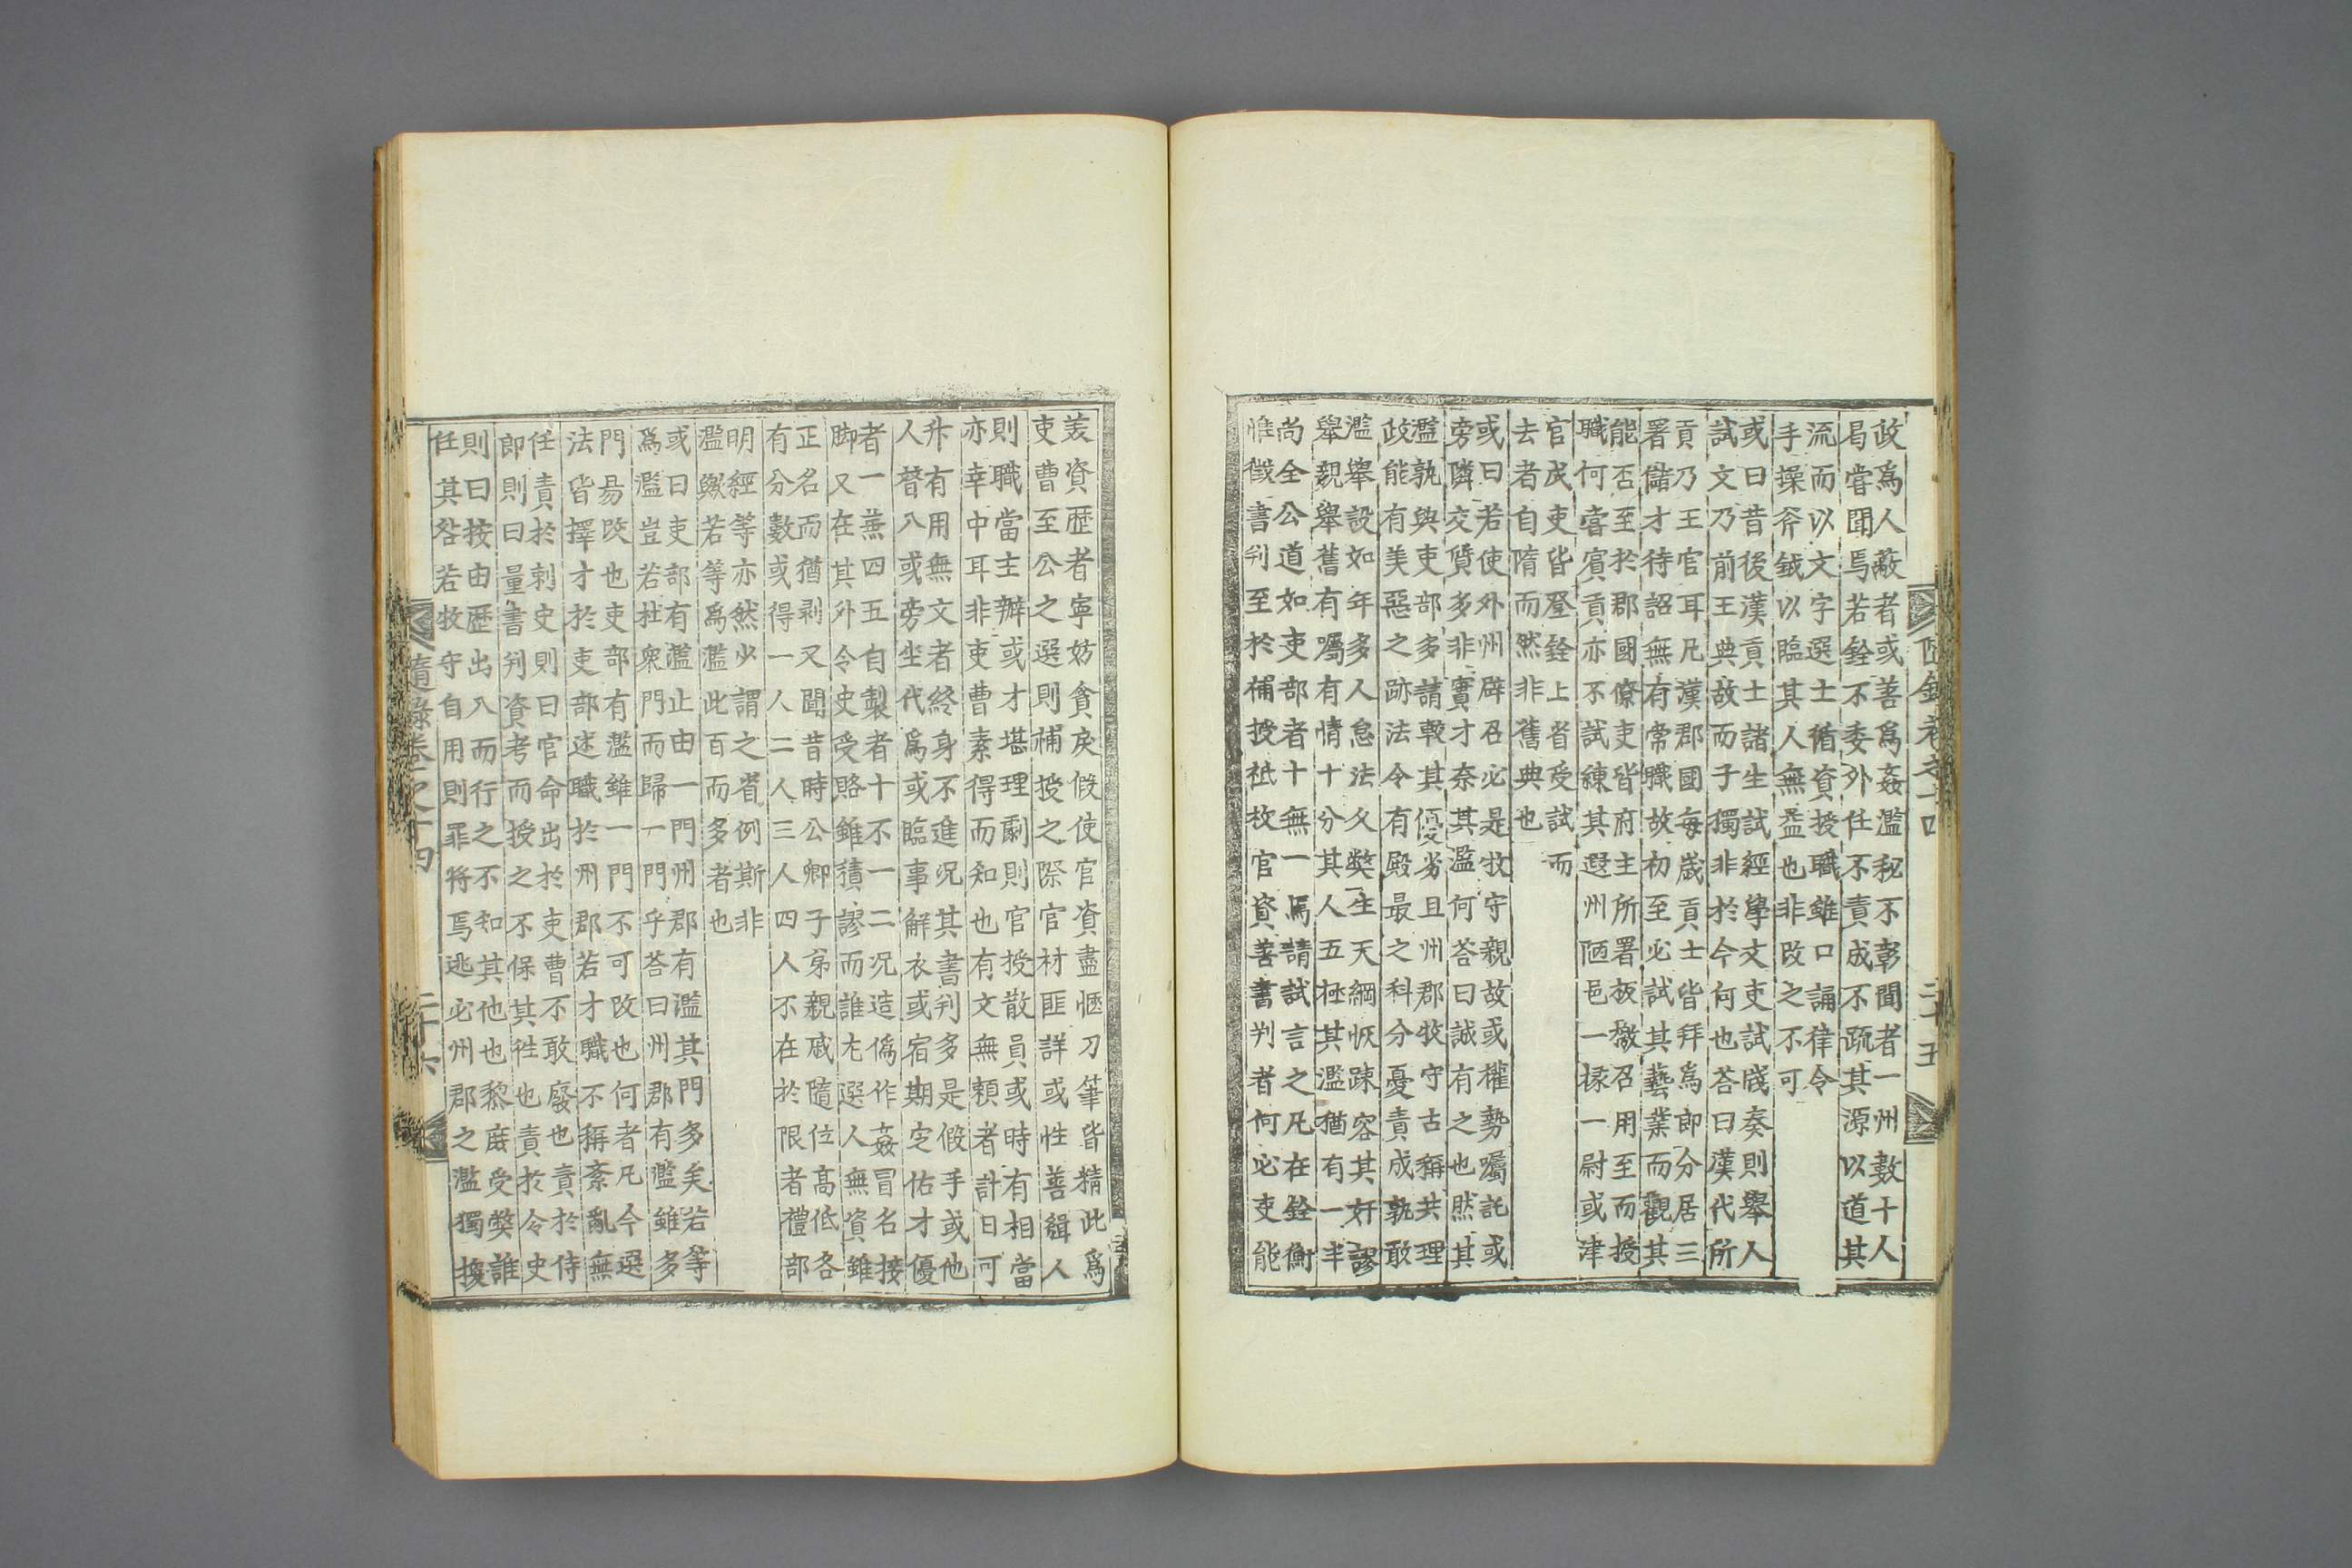 隨錄卷之十四 二十五
政爲人蔽者或善爲姦濫秘不彰聞者一州數十人
局嘗聞焉若銓不委外任不責成不疏其源以道其
流而以文字選士循資授職雖口誦律令
手操斧鉞以臨其人無益也非改之不可
或曰昔後漢貢士諸生試經學文吏試牋奏則舉人
試文乃前王典故而子獨非於今何也荅曰漢代所
貢乃王官耳凡漢郡國每歲貢士皆拜爲郎分居三
署儲才待詔無有常職故初至必試其藝業而觀其
能否至於郡國僚吏皆府主所署板檄召用至而授
職何嘗賓貢亦不試練其遐州陋邑一掾一尉或津
官戍吏皆登銓上省受試而
去者自隋而然非舊典也
或曰若使外州辟召必是牧守親故或權勢囑託或
旁隣交貨多非實才奈其濫何荅曰誠有之也然其
濫孰與吏部多請較其優劣且州郡牧守古稱共理
政能有美惡之跡法令有殿最之科分憂責成孰敢
濫舉設如年多人怠法久弊生天綱恢疎容其奸謬
舉親舉舊有囑有情十分其人五極其濫猶有一半
尚全公道如吏部者十無一焉請試言之凡在銓衡
惟徵書判至於補授秪校官資善書判者何必吏能
美資歷者寧妨貪戾假使官資盡愜刀筆皆精此爲
吏曹至公之選則補授之際官材匪詳或性善緝人
則職當主辦或才堪理劇則官授散員或時有相當
亦幸中耳非吏曹素得而知也有文無賴者計日可
升有用無文者終身不進況其書判多是假手或他
人替入或旁坐代爲或臨事解衣或宿期定佑才優
者一兼四五自製者十不一二況造僞作姦冒名接
脚又在其外令史受賂雖積謬而誰尤選人無資雖
正名而猶剥又聞昔時公卿子弟親戚隨位高低各
有分數或得一人二人三人四人不在於限者禮部
明經等亦然少謂之省例斯非
濫歟若等爲濫此百而多者也
或曰吏部有濫止由一門州郡有濫其門多矣若等
爲濫豈若杜衆門而歸一門乎荅曰州郡有濫雖多
門易改也吏部有濫雖一門不可改也何者凡今選
法皆擇才於吏部述職於州郡若才職不稱紊亂無
任責於刺史則曰官命出於吏曹不敢廢也責於侍
郎則曰量書判資考而授之不保其往也責於令史
則曰按由歷出入而行之不知其他也黎庶受弊誰
任其咎若牧守自用則罪將焉逃必州郡之濫獨換
隨錄卷之十四 二十六